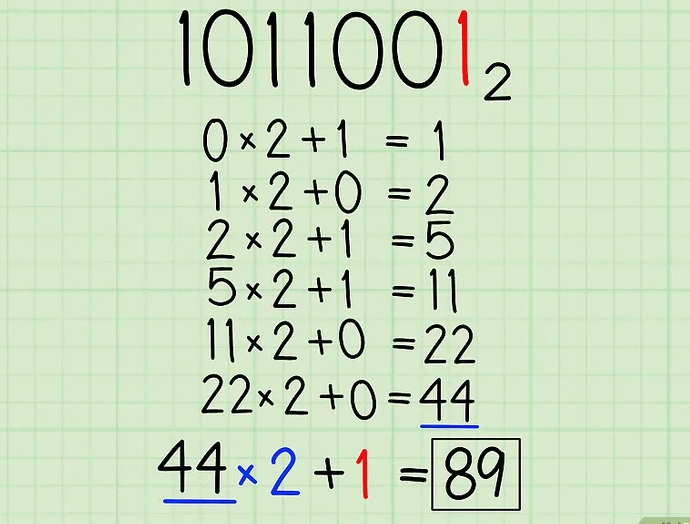 1011001₂
0 × 2 + 1 = 1
1 × 2 + 0 = 2
2 × 2 + 1 = 5
5 × 2 + 1 = 11
11 × 2 + 0 = 22
22 × 2 + 0 = 44
44 × 2 + 1 = 89